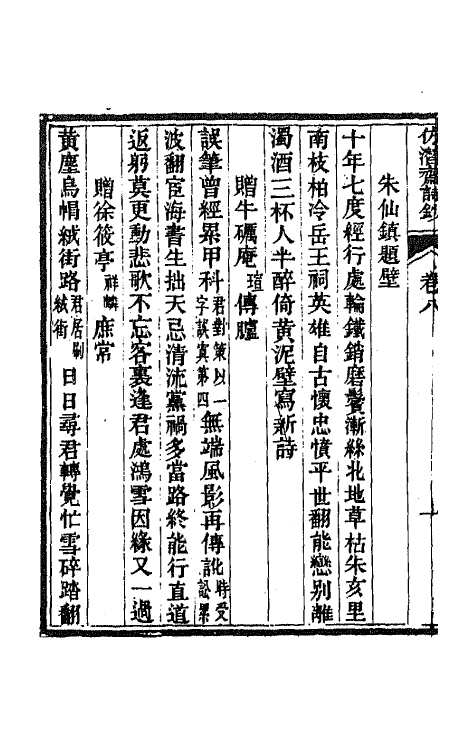 仿潛齋詩鈔 卷八 一
朱仙鎮題壁
十年七度經行處輪鐵銷磨鬢漸絲北地草枯朱亥里
南枝柏冷岳王祠英雄自古懷忠憤平世翻能戀别離
濁酒三杯人半醉倚黃泥壁寫新詩
贈牛礪庵瑄傳臚
誤筆曾經累甲科君對策以一字誤寘第四無端風影再傳訛時受訟累
波翻宦海書生拙天忌清流黨禍多當路終能行直道
返躬莫更動悲歌不忘客裏逢君處鴻雪因緣又一過
贈徐筱亭祥麟庶常
黃塵烏帽絨街路君居刷絨街日日尋君轉覺忙雪碎踏翻